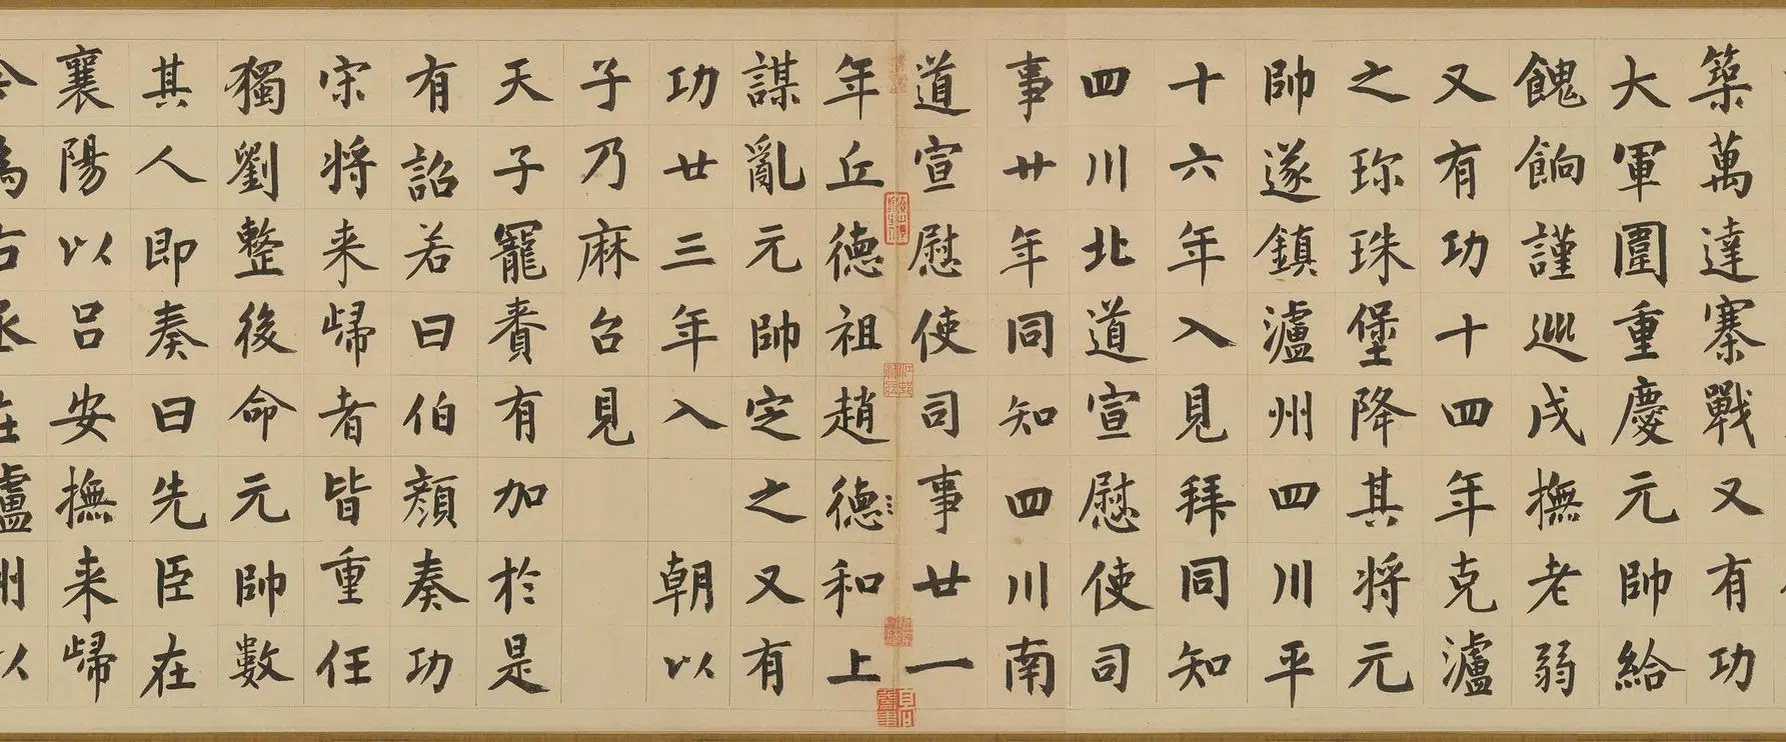 築萬達寨戰又有功
大軍圍重慶元帥給
餽餉謹巡戍撫老弱
又有功十四年克瀘
之珎珠堡降其将元
帥遂鎮瀘州四川平
十六年入見拜同知
四川北道宣慰使司
事廿年同知四川南
道宣慰使司事廿一
年丘德祖趙德〻和上
謀亂元帥定之又有
功廿三年入朝以
子乃麻台見
天子寵賚有加於是
有詔若曰伯顔奏功
宋将来歸者皆重任
獨劉整後命元帥數
其人即奏曰先臣在
襄陽以吕安撫来歸